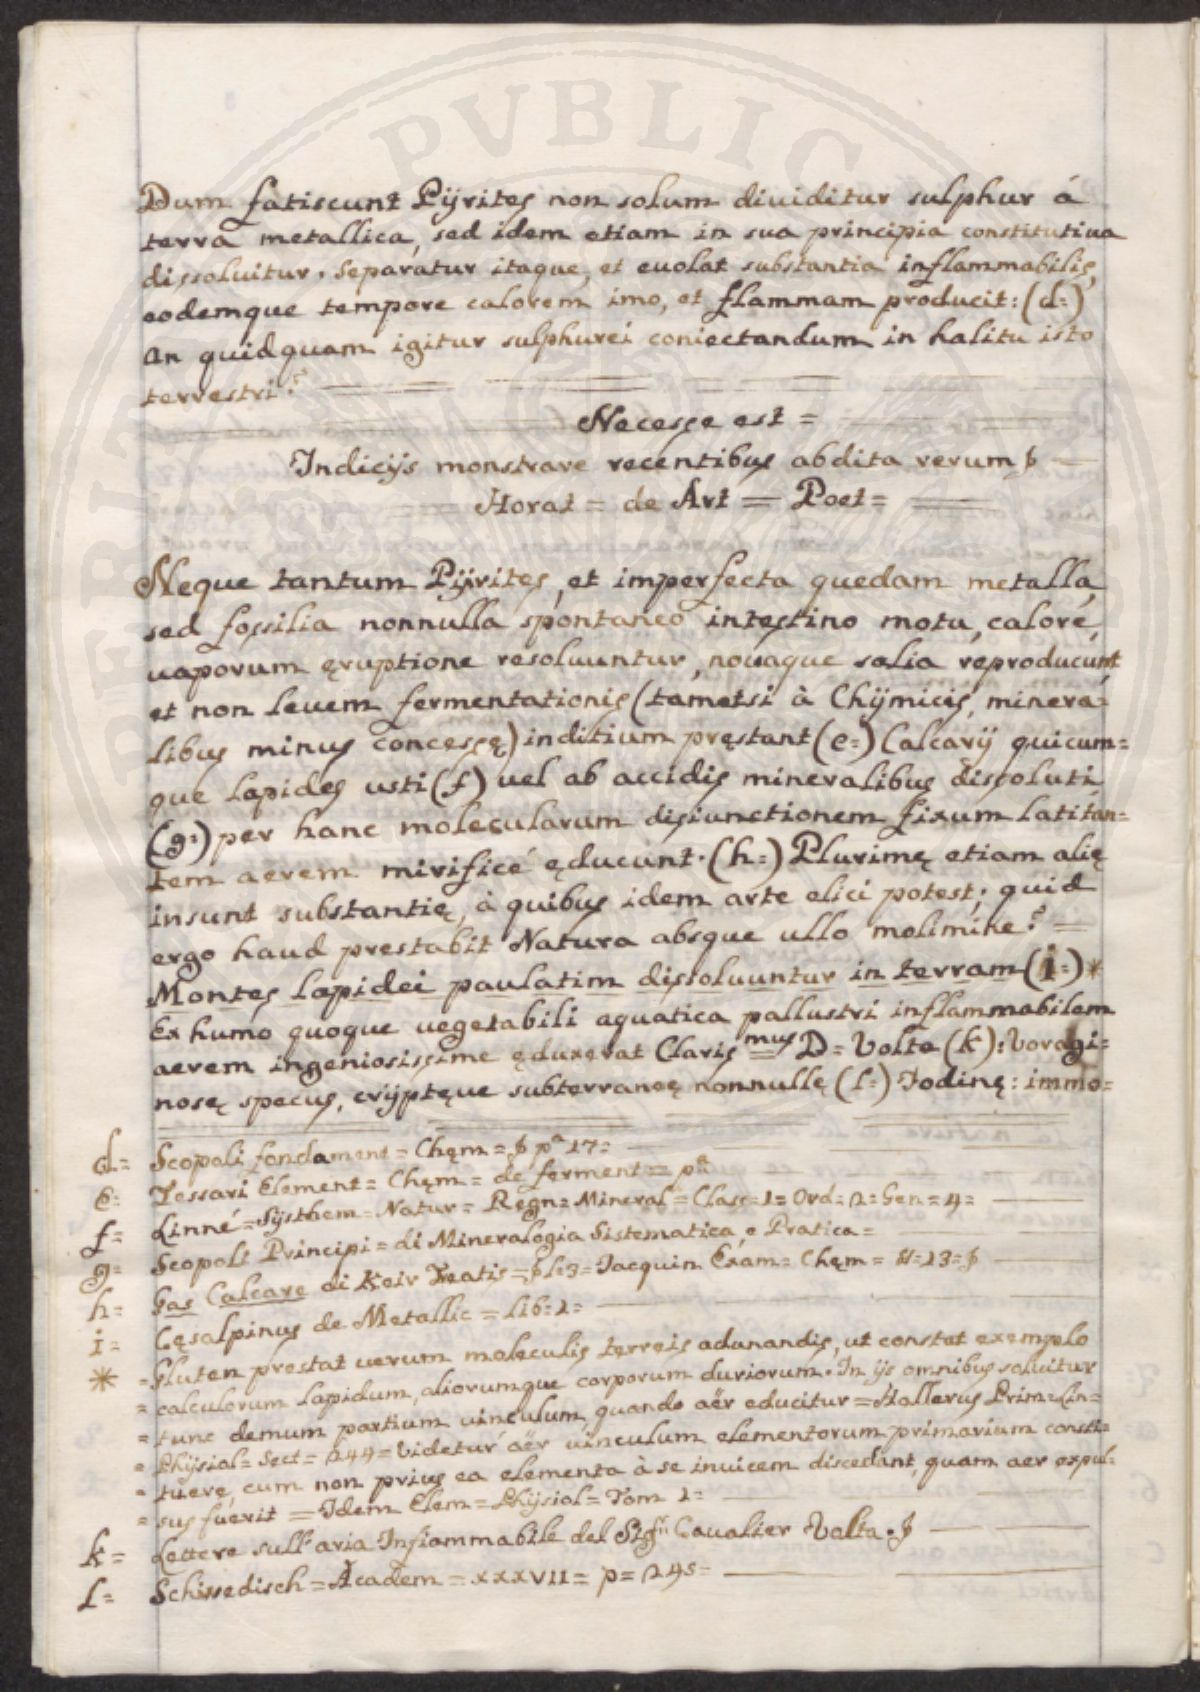 Dum fatiscunt Pÿrites non solum diuiditur sulphur á
terra metallica, sed idem etiam in sua principia constitutiua
dissoluitur. Separatur itaque, et euolat substantia inflammabilis,
eodemque tempore calorem imo, et flammam producit: (d=)
An quidquam igitur sulphurei coniectandum in halitu isto
terrestri?
Necesse est =
Indicijs monstrare recentibus abdita rerum
Horat = de Art = Poet =
Neque tantum Pÿrites, et imperfecta quedam metalla,
sed fossilia nonnulla spontaneo intestino motu, caloré,
uaporum ęruptione resoluuntur, nouaque salia reproducunt,
et non leuem fermentationis (tametsi à Chÿmicis, minera=
libus minus concessę) inditium pręstant (e=) Calcarij quicum=
que lapides usti (f) uel ab accidis mineralibus dissoluti
(g=) per hanc molecularum disiunctionem fixum latitan=
tem aerem mirificé ęducunt. (h=) Plurimę etiam alię
insunt substantię, à quibus idem arte elici potest; quid
ergo haud prestabit Natura absque ullo molimine? =
Montes lapidei paulatim dissoluuntur in terram (i=) *
Ex humo quoque uegetabili aquatica pallustri inflammabilem
aerem ingeniosissime ęduxerat Claris mus D= Volta (k): Voragi=
nosę specus, crÿptęue subterraneę nonnullę (l=) Iodinę: immo=
d= Scopoli fondament = Chęm = pa 17=
e= Tessari Element = Chęm = de ferment = pa
f= Linné = Sÿsthem = Natur = Regn = Mineral = Class = 1 = Ord = 2 = Gen = 4 =
g= Scopoli Principi = di Mineralogia Sistematica, e Pratica =
h= Gas Calcare di Keir Treatis = § 1.3 = Iacquin Exam = Chęm = 13 =
i= Cęsalpinus de Metallic = Lib: 1 =
* = Gluten prestat uerum moleculis tęrreis adunandis, ut constat exemplo
= calculorum lapidum, aliorumque corporum duriorum. In ijs omnibus soluitur
= tunc demum partium uinculum, quando aër educitur = Hallerus Prim = Lin =
= Phÿsiol = Sect = 244 = Videtur aër uinculum elementorum primarium consti=
= tuere, cum non prius ea elementa à se inuicem discedant, quam aer expul=
= sus fuerit = Idem Elem = Phÿsiol = Tom 1 =
k= Lettere sull' aria Infiammabile del Sigr Caualier Volta.
l= Schissedisch = Academ = XXXVII = p = 245 =